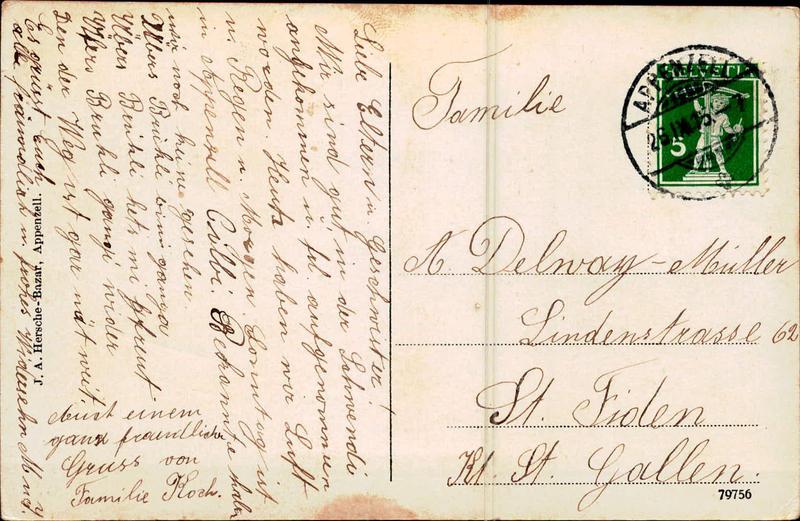 Liebe Eltern u. Geschwister!
Mir sind gut in der Schwendi
angekommen u. fel aufgenommen
worden. Heute haben wir Luft
u. Regen u. Morgen Sonntag ist
in Appenzell Bekannte habe
wir noch keine gesehen.
Übers Brühli bini ganga
Übers Brühli hets mi gfreut
Übers Brühli gangi wider
Den der Weg ist gar nüt weit.
Es grüsst Euch
alle freundlich u. frohes Wiedersehn
Auch einem
ganz freundliche
Gruss von
Familie Koch.
J. A. Hersche-Bazar, Appenzell.
HELVETIA
5
APPENZELL
Familie
A. Delway-Müller
Lindenstrasse 62
St. Fiden
Kt. St. Gallen.
79756